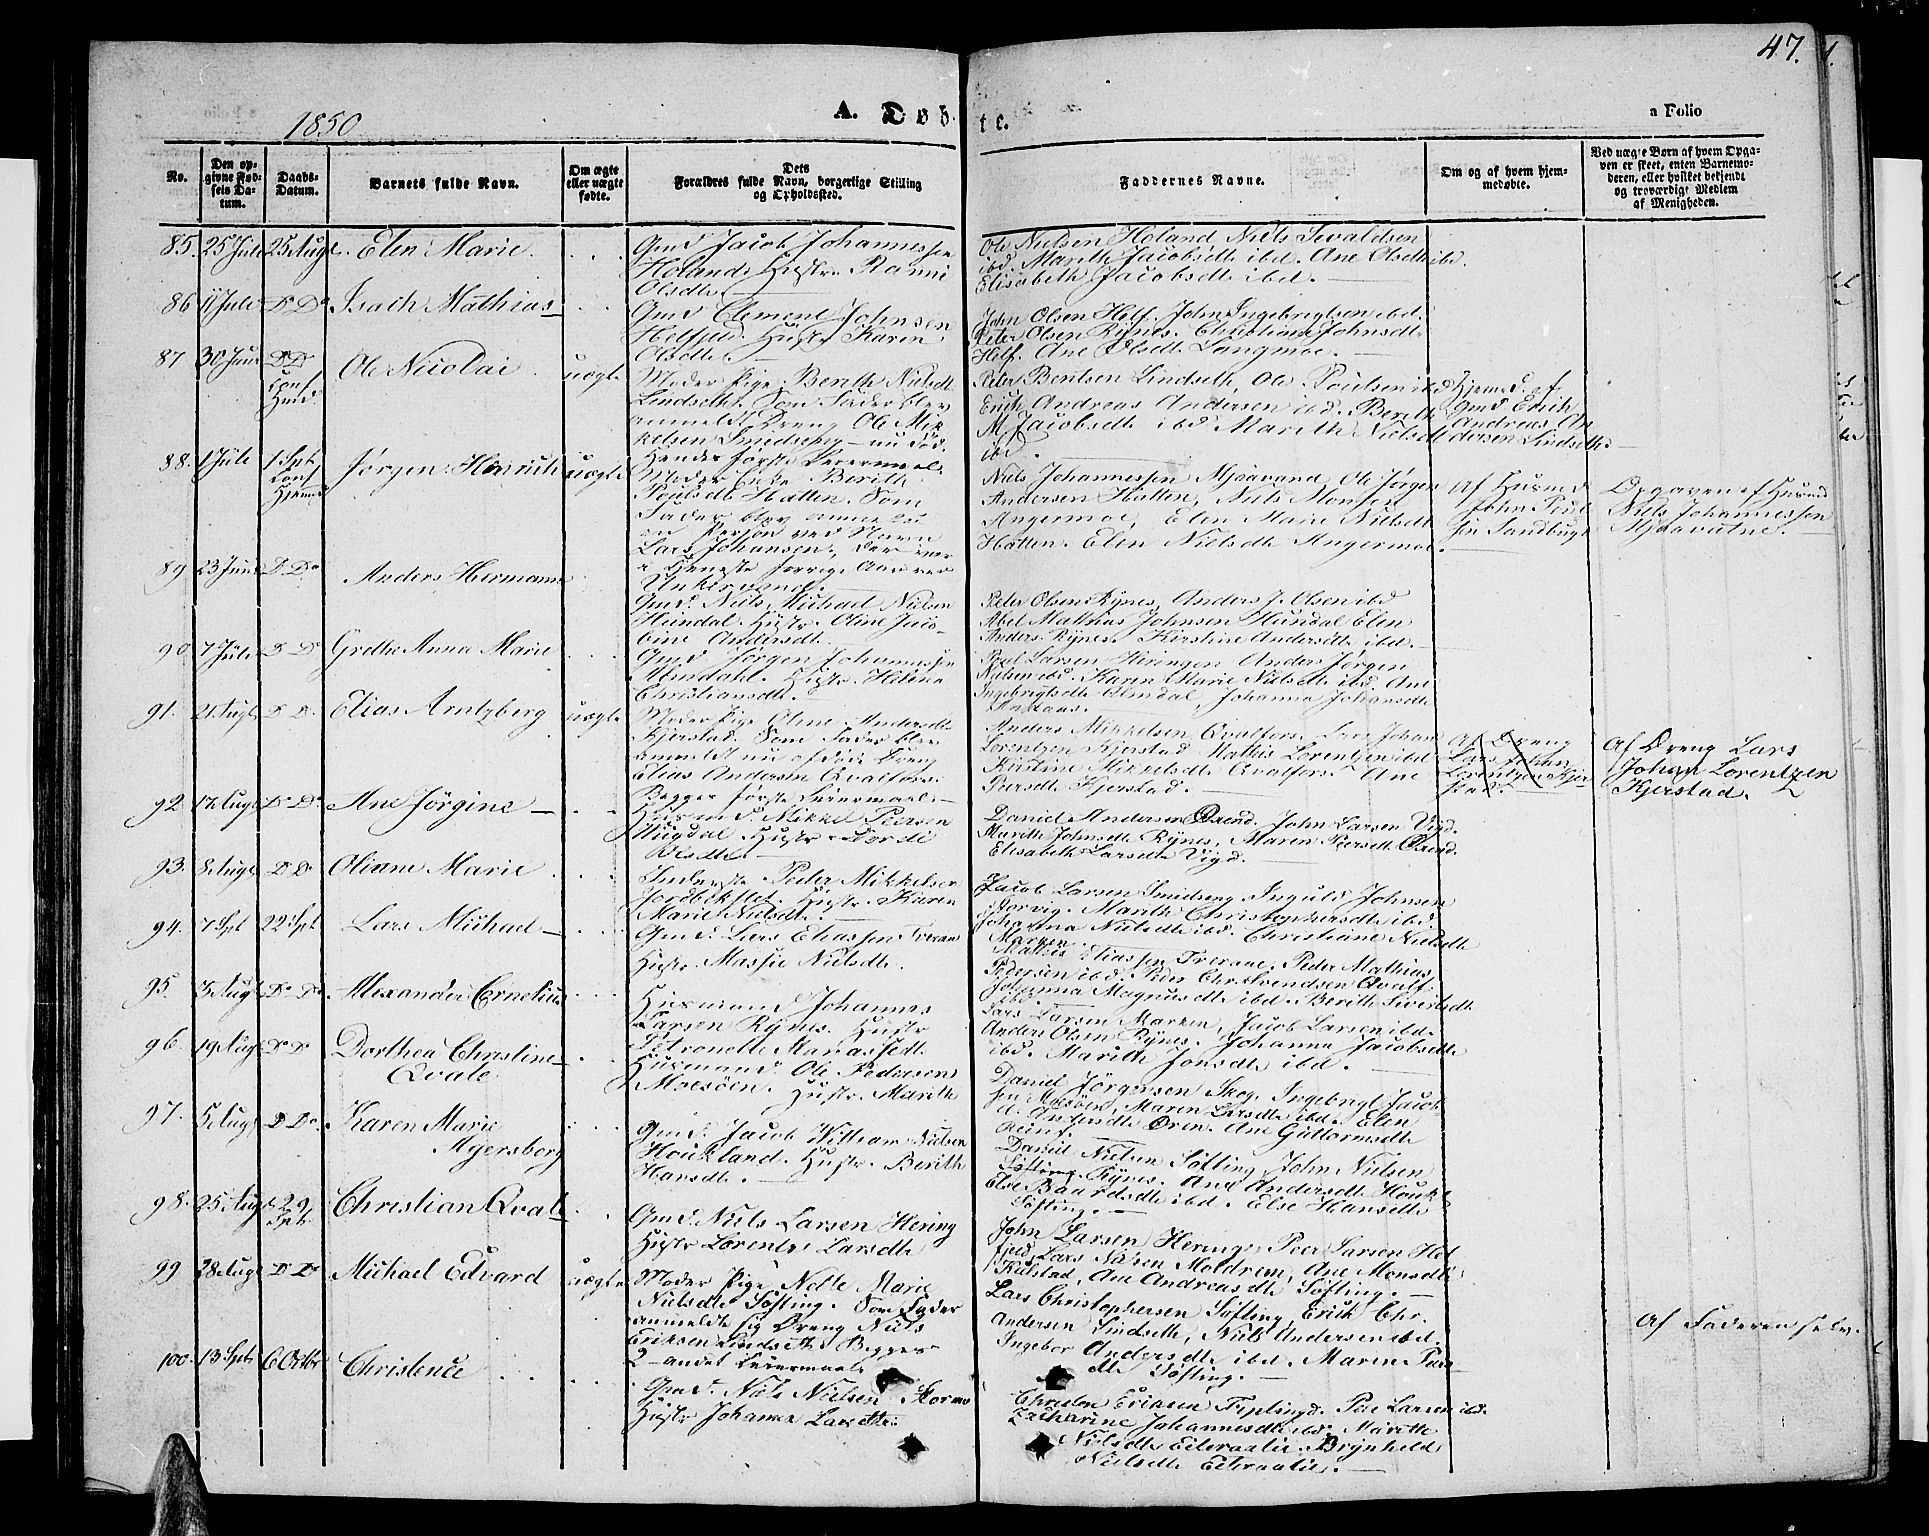 47.
1850
A. Døb
te.
a Folio
No.
Den op-
givne Fød-
sels Da-
tum.
Daabs-
Datum.
Barnets fulde Navn.
Om ægte
eller uægte
fødte.
Dets
Forældres fulde Navn, borgerlige Stilling
og Opholdssted.
Faddernes Navne.
Om og af hvem hjem-
medøbte.
Ved uægte Børn af hvem Opga-
ven er skeet, enten Barnemo-
deren, eller hvilket bekjendt
og troværdigt Medlem
af Menigheden.
85. 25 Juli 25 Augt. Elen Marie.
Gmd Jacob Johannessen
Holand. Hustr. Ranni
Olsdtr.
Ole Nielsen Holand Niels Sivaldsen
ibd. Marith Jacobsdtr ibd. Ane Olsdtr ibd.
Elisabeth Jacobsdtr ibd.
86 11 Juli Do Do Isach Mathias
Gmd Clement Johnsen
Helfjeld. Hustr Karen
Olsdtr.
John Olsen Helf. John Ingebrigtsen ibd.
Peter Olsen Rÿnes. Christina Johnsdtr
Helf. Ane Olsdtr Langmoe.
87 30 Juni Do Do Ole Nicolai uægte
Conf
Hmd.
Moder Pige Berith Nielsdtr
Lindseth. Som Fader blev
anmeldt Dreng Ole Mik
kelsen Smedseng - nu død.
Hendes første Leiermaal.
Peter Bentsen Lindseth, Ole Poulsen ibd
Erich Andreas Andersen ibd. Berith
M Jacobsdtr ibd Marith Nielsdtr
ibd.
Hjemd. af
Gmd Erich
Andreas An
dersen Lindseth.
88. 1 Juli 1 Spt. Jørgen Henrich uægte
Conf
Hjemd
Moder Enke Berith
Poulsdtr Hatten. Som
Fader blev anmeldt
en Person ved Navn
Lars Johansen, der var
i Tjeneste forrige Aar ved
Unkervand.
Niels Johannessen Mjaavand, Ole Jørgen
Andersen Hatten, Niels Monsen
Angermoe, Elen Marie Nielsdtr
Hatten. Elen Nielsdtr Angermoe.
Af Husmd
John Poul
sen Sandbugt
Opgaven af Husmd
Niels Johannessen
Mjaavatne.
89. 23 Juni Do Do Anders Hermann
Gmd. Niels Michael Nielsen
Hundal. Hustr. Oline Jaco-
bine Andersdtr.
Peter Olsen Rÿnes, Anders J. Olsen ibd
Abel Mathias Johnsen Hundal Elen
Anders. Rÿnes. Kirstine Andersdtr ibd.
90. 7 Juli D Do Grethe Anna Marie
Gmd Jørgen Johannessen
Almdahl. Hustr. Helena
Christiansdtr.
Poul Larsen Heringen Anders Jørgen
Nielsen ibd. Karen Marie Nielsdtr ibd. Ane
Ingebrigtsdtr Almdal, Johanna Johansdtr
91. 21 Augt D Do. Elias Arntzberg uægte
Moder Pige Oline Andersdtr
Kjerstad. Som Fader blev
anmeldt nu afdøde Dreng
Elias Andersen Qvalfors.
Begges første Leiermaal.
Anders Mikkelsen Qvalfors Lars Johan
Lorentzen Kjerstad Mathis Lorentzen ibd
Kirstine Mikkelsdtr Qvalfors. Ane
Peersdtr Kjerstad.
Af Dreng
Lars Johan
Lorentzen Kjer
stad.
Af Dreng Lars
Johan Lorentzen
Kjerstad.
92 17 Augt Do Do Ane Jørgine
Husmd. Mikkel Petersen
Mugdal Hustr. Dordi
Olsdtr.
Daniel Andersen Ørend. John Larsen Vigd.
Marith Johnsdtr Rÿnes, Maren Peersdtr Ørend.
Elisabeth Larsdtr Vigd.
93. 8 Augt D Do Oliane Marie
Inderste Peder Mikkelsen
Jordbækslet Hustr. Karen
Marie Nielsdtr.
Jacob Larsen Smedseng. Inguld Johnsen
Storvig. Marith Christophersdtr ibd
Johanna Nielsdtr ibd. Christiane Nielsdtr
Marken.
94. 7 Spt 22 Spt. Lars Michael
Gmd. Lars Eliassen Trerane
Hustr. Massie Nielsdtr.
Mathis Eliassen Trerane, Peder Mathias
Pedersen ibd. Peder Chr. Svendsen Qvalf.
Johanna Magnusdtr ibd. Berith Sivertsdtr
ibd.
95. 3 Augt Do Do Alexander Cornelius
Husmand Johannes
Larsen Rÿnes. Hustr
Petronelle Manassedtr.
Lars Larsen Marken, Jacob Larsen ibd.
Anders Olsen Rÿnes. Johanna Jacobsdtr
ibd. Marith Jonsdtr ibd.
96. 19 Augt Do Do Dorthea Christine
Qvale
Husmand. Ole Pedersen
Moesöen. Hustr. Marith
Daniel Jörgensen Skog, Ingebrigt Jacob
sen Moesöen, Maren Larsdtr ibd. Elen
Andersdtr Øren. Ane Guttormsdtr
97. 5 Augt D Do. Karen Marie
Mÿersborg
Gmd. Jacob Willum Nielsen
Houkland. Hustr. Berith
Hansdtr.
Daniel Nielsen Søfting, John Nielsen
Søfting Rÿnes. Ane Andersdtr Houkl.
Else Baardsdtr ibd. Else Hansdtr
Søfting.
98. 25 Augt 29 Spt. Christian Qvale
Gmd. Niels Larsen Hering
Hustr Lorentze Larsdtr
John Larsen Hering, Peer Larsen Hel
fjeld, Lars Nilsen Moldrem, Ane Monsdtr
Kulstad, Ane Andreasdtr Søfting.
99 28 Augt D Do Michael Edvard uægte
Moder Pige Nelle Marie
Nielsdtr Søfting. Som Fader
anmeldte sig Dreng Niels
Eriksen Lindseth. Begges
2-andet Leiermaal
Lars Christophersen Søfting, Erik Chr.
Andersen Lindseth, Niels Andersen ibd.
Ingebor Andersdtr ibd. Maren Peers
dtr Søfting.
Af Faderen selv.
100. 13 Spt. 6 Octbr Christence
Gmd. Niels Nielsen Stormo
Hustr Johanna Larsdtr.
Christen Eriksen Tiplingd. Peer Larsen ibd.
Zacharine Johannesdtr ibd. Marith
Nielsdtr Eiteraalie. Brynhild
Nielsdtr Eiteraalie.